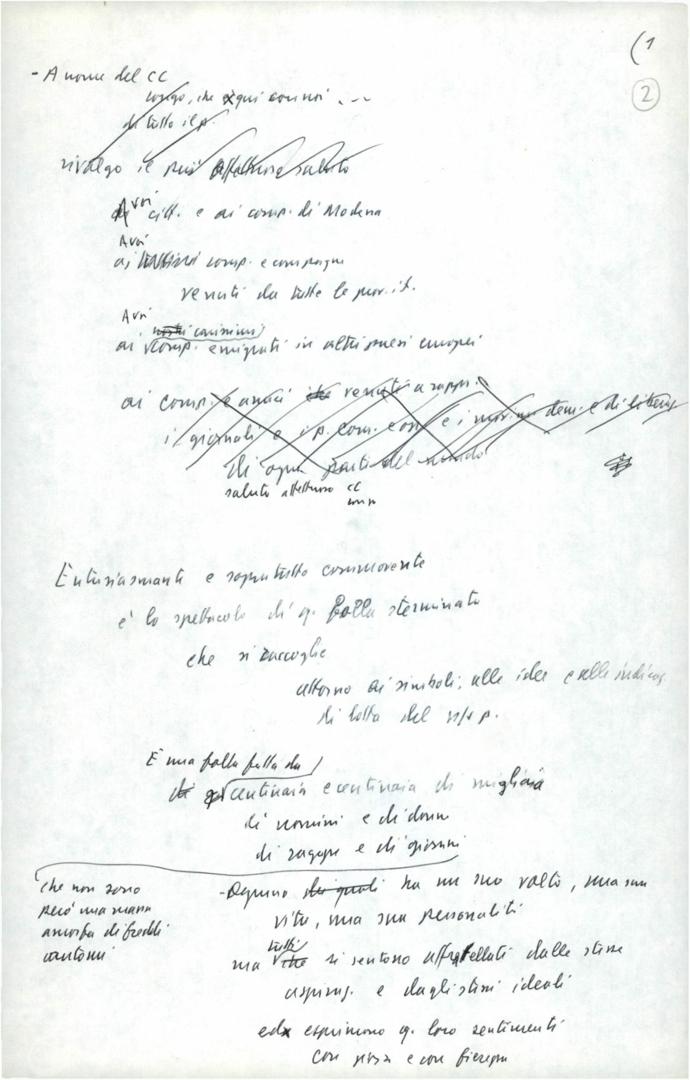 (1
2
- A nome del CC
che qui con noi ...
di tutto il p.
rivolgo il più affettuoso saluto
A voi
citt. e ai comp. di Modena
A voi
ai comp. e compagne
venuti da tutte le prov. it.
A voi
carissimi
ai comp. emigrati in altri paesi europei
ai comp. e amici che venuti a rappr.
i giornali e i p. com. e i mov. dem. e di liberaz.
di ogni parti del mondo
saluto affettuoso CC
Entusiasmante e soprattutto commovente
è lo spettacolo di q. folla sterminata
che si raccoglie
attorno ai simboli, alle idee e alle indicaz.
di lotta del n/s p.
È una folla fatta da
di centinaia e centinaia di migliaia
di uomini e di donne
di ragazze e di giovani
che non sono
però una massa
amorfa di freddi
automi
- Ognuno dei quali ha un suo volto, una sua
vita, una sua personalità
tutti
ma che si sentono affratellati dalle stesse
aspiraz. e dagli stessi ideali
ed esprimono q. loro sentimenti
con gioia e con fierezza